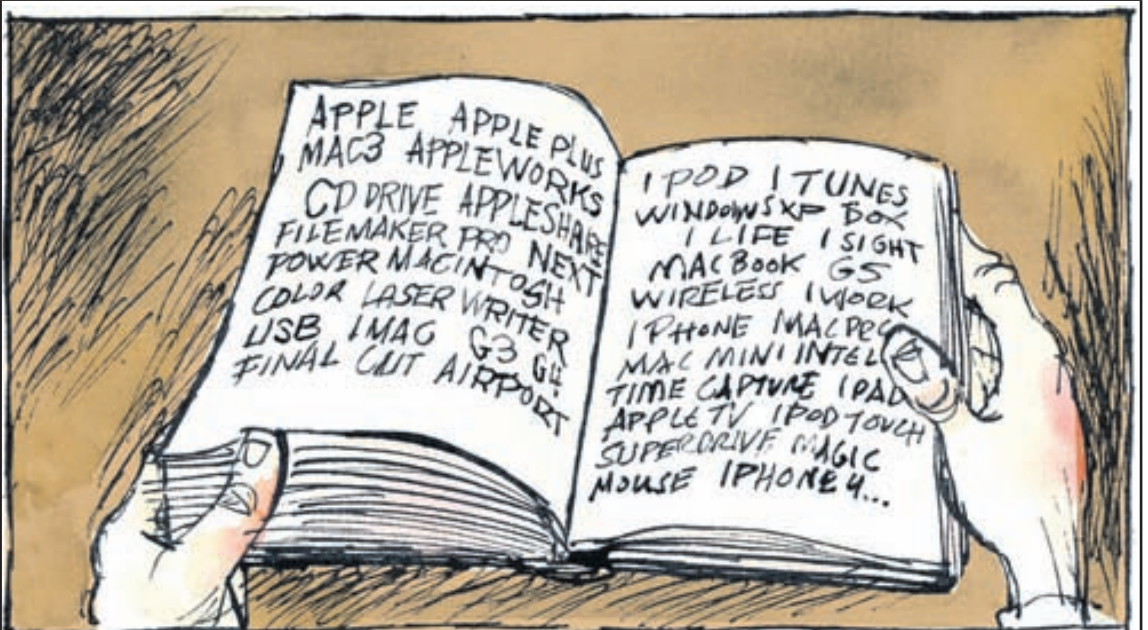 APPLE APPLE PLUS
MAC3 APPLEWORKS
CD DRIVE APPLESHARE
FILEMAKER PRO NEXT
POWER MACINTOSH
COLOR LASER WRITER
USB IMAC G3 G4
FINAL CUT AIRPORT
I POD I TUNES
WINDOWS XP BOX
I LIFE I SIGHT
MACBOOK G5
WIRELESS IWORK
IPHONE MACPRO
MAC MINI INTEL
TIME CAPTURE IPAD
APPLE TV IPOD TOUCH
SUPERDRIVE MAGIC
MOUSE IPHONE 4...